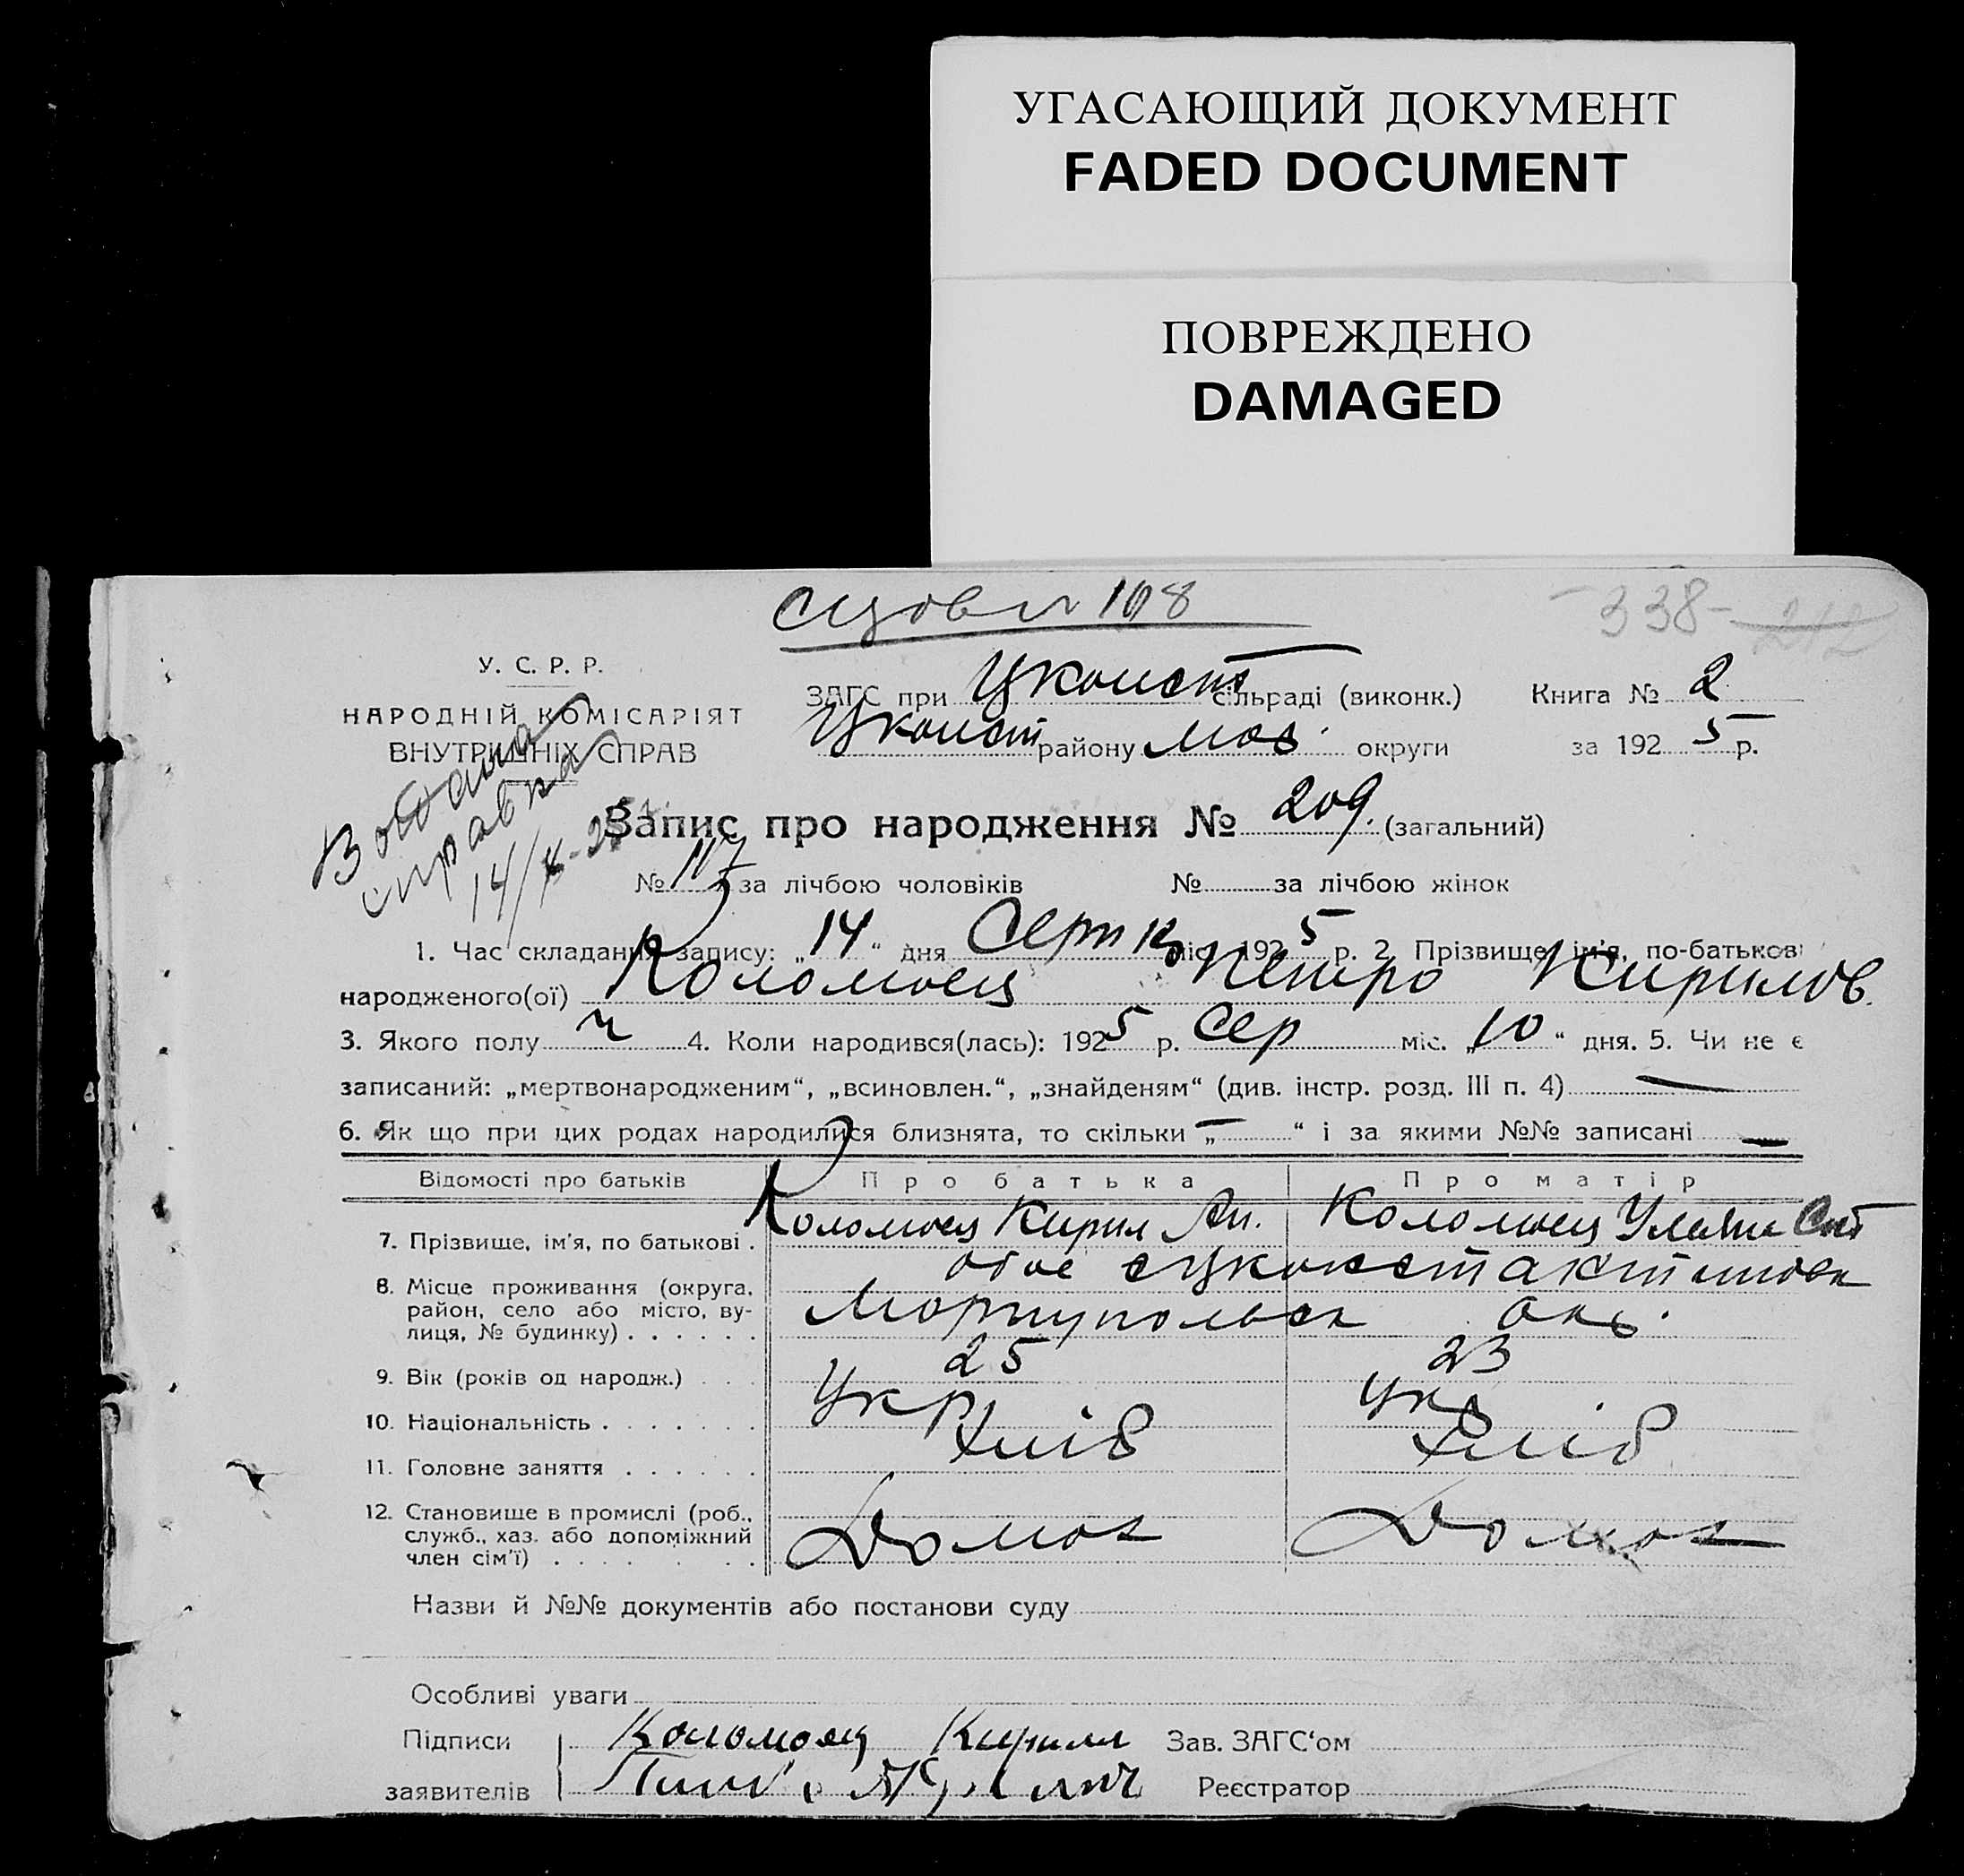 УГАСАЮЩИЙ ДОКУМЕНТ
FADED DOCUMENT
ПОВРЕЖДЕНО
DAMAGED
108
-338- 212
У. С. Р. Р.
НАРОДНІЙ КОМІСАРІЯТ
ВНУТРІШНІХ СПРАВ
ЗАГС при Цконст сільраді (виконк.) Книга № 2
Цконст району Мар. округи за 1925 р.
справка
14/
Запис про народження № 209. (загальний)
№ 117 за лічбою чоловіків № за лічбою жінок
1. Час складання запису: „14“ дня Серпня міс. 1925 р. 2. Прізвище, ім'я, по-батькові
народженого(ої) Коломоец Петро Кирилов.
3. Якого полу ч 4. Коли народився(лась): 1925 р. Сер міс. „10“ дня. 5. Чи не є
записаний: „мертвонародженим“, „всиновлен.“, „знайденям“ (див. інстр. розд. III п. 4) —
6. Як що при цих родах народилися близнята, то скільки „—“ і за якими №№ записані —
Відомості про батьків Про батька Про матір
7. Прізвище, ім'я, по батькові . Коломоец Кирил Ан. Коломоец Уляна
8. Місце проживання (округа, район, село або місто, вулиця, № будинку) . . . . . . обоє
окр.
9. Вік (років од народж.) . . . 25 23
10. Національність . . . . . . . Укр Укр
11. Головне заняття . . . . . . Хлів Хлів
12. Становище в промислі (роб.,
служб., хаз. або допоміжний
член сім'ї) . . . . . . . Домог Домог
Назви й №№ документів або постанови суду
Особливі уваги
Підписи Коломоец Кирилл Зав. ЗАГС'ом
заявителів Реєстратор